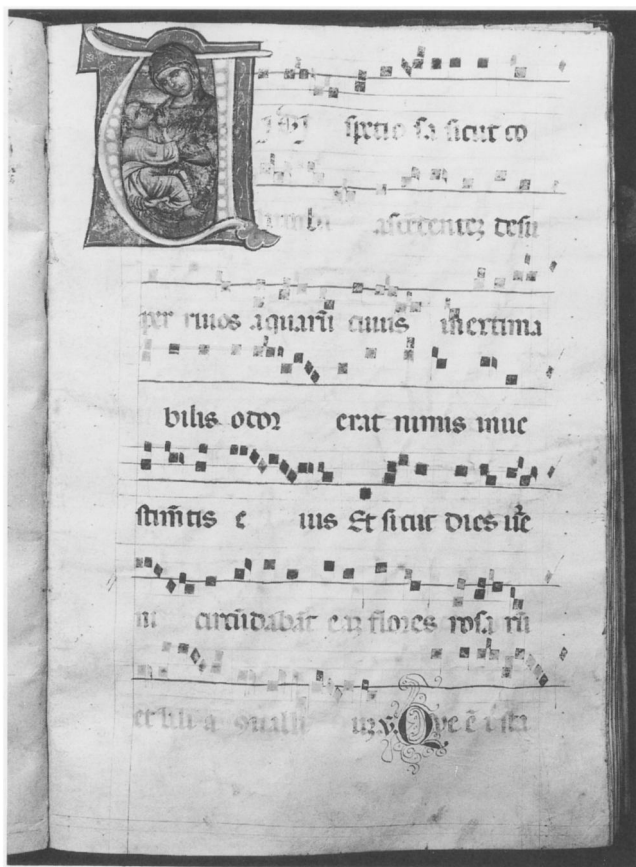 V I DI speciosā sicut co
lumbā ascēdentez desu
per riuos aquarū cuius inextima
bilis odor erat nimis in ue
stimētis e ius Et sicut dies u̾e
ni circūdabāt eaz flores rosa rū
et lili a ɔuallı uz. v. Que ē ista